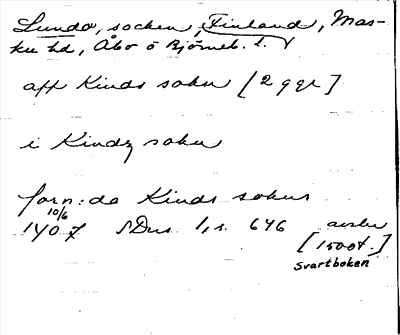 Lundo, socken, Finland, Mas-
ku hd, Åbo o Björneb. l.
aff Kinds sokn [2 ggr]
i Kindz sokn
forn: da Kinds sokns
10/6
1407 SDns 1, s. 646 avskr
[1500t.]
Svartboken